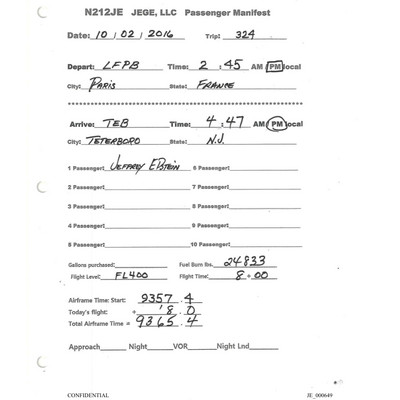 N212JE JEGE, LLC Passenger Manifest
Date: 10 / 02 / 2016 Trip: 324
Depart: LFPB Time: 2 : 45 AM PM local
City: PARIS State: FRANCE
Arrive: TEB Time: 4 : 47 AM PM local
City: TETERBORO State: N.J.
1 Passenger: JEFFREY EPSTEIN 6 Passenger:
2 Passenger: 7 Passenger:
3 Passenger: 8 Passenger:
4 Passenger: 9 Passenger:
5 Passenger: 10 Passenger:
Gallons purchased: Fuel Burn lbs. 24833
Flight Level: FL400 Flight Time: 8 + 00
Airframe Time: Start: 9357 . 4
Today's flight: + 8 . 0
Total Airframe Time = 9365 . 4
Approach Night VOR Night Lnd
CONFIDENTIAL JE_000649